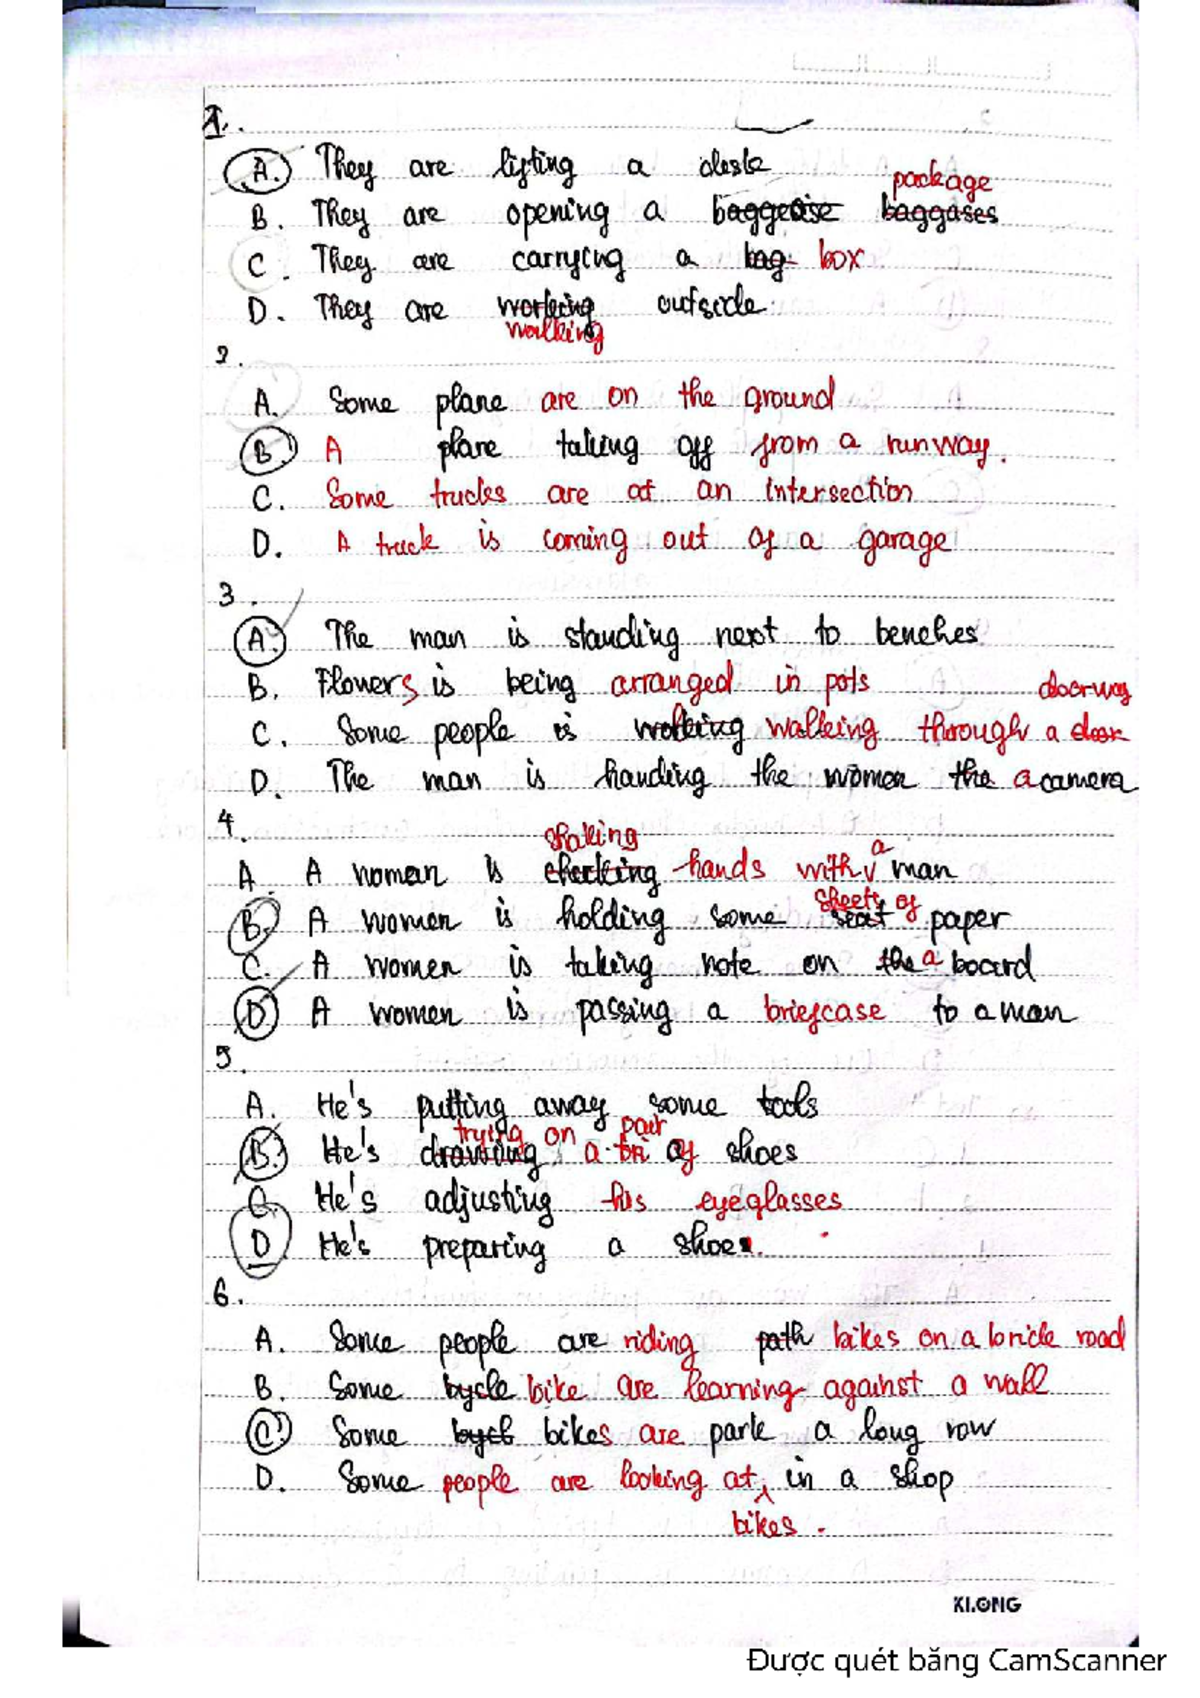 1.
A. They are lifting a desk
package
B. They are opening a baggeise baggases
C. They are carrying a bag box
D. They are working outside
walking
2.
A. Some plane are on the ground
B A plane taking off from a runway.
C. Some trucks are at an intersection
D. A truck is coming out of a garage
3.
A. The man is standing next to benches
B. Flowers is being arranged in pots
doorway
C. Some people is walking through a door
D. The man is handing the women the a camera
4.
shaking
A. A woman is checking hands with a man
sheets of
B. A women is holding some seat paper
C. A women is taking note on the a board
D A women is passing a briefcase to a man
5.
A. He's putting away some tools
trying on pair
B. He's drawing a bri of shoes
C. He's adjusting his eyeglasses
D He's preparing a shoe.
6.
A. Some people are riding path bikes on a bricle road
B. Some bycle bike are learning against a wall
C Some bycl bikes are park a long row
D. Some people are looking at in a shop
bikes.
KLONG
Được quét bằng CamScanner